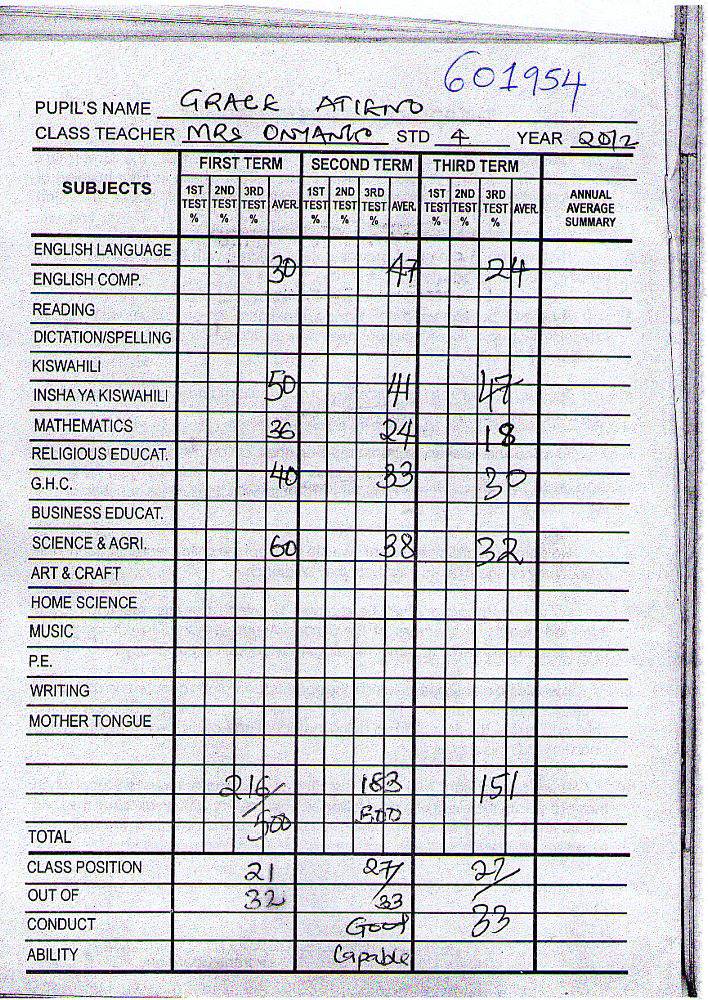 601954
PUPIL'S NAME GRACE ATIENO
CLASS TEACHER MRS ONYANGO STD 4 YEAR 2012
SUBJECTS FIRST TERM SECOND TERM THIRD TERM ANNUAL AVERAGE SUMMARY
1ST TEST % 2ND TEST % 3RD TEST % AVER. 1ST TEST % 2ND TEST % 3RD TEST % AVER. 1ST TEST % 2ND TEST % 3RD TEST % AVER.
ENGLISH LANGUAGE
30 47 24
ENGLISH COMP.
READING
DICTATION/SPELLING
KISWAHILI
50 41 47
INSHA YA KISWAHILI
MATHEMATICS 36 24 18
RELIGIOUS EDUCAT.
40 33 30
G.H.C.
BUSINESS EDUCAT.
SCIENCE & AGRI. 60 38 32
ART & CRAFT
HOME SCIENCE
MUSIC
P.E.
WRITING
MOTHER TONGUE
216/ 183 151
500 500
TOTAL
CLASS POSITION 21 27/ 27/
OUT OF 32 33 33
CONDUCT Good
ABILITY Capable